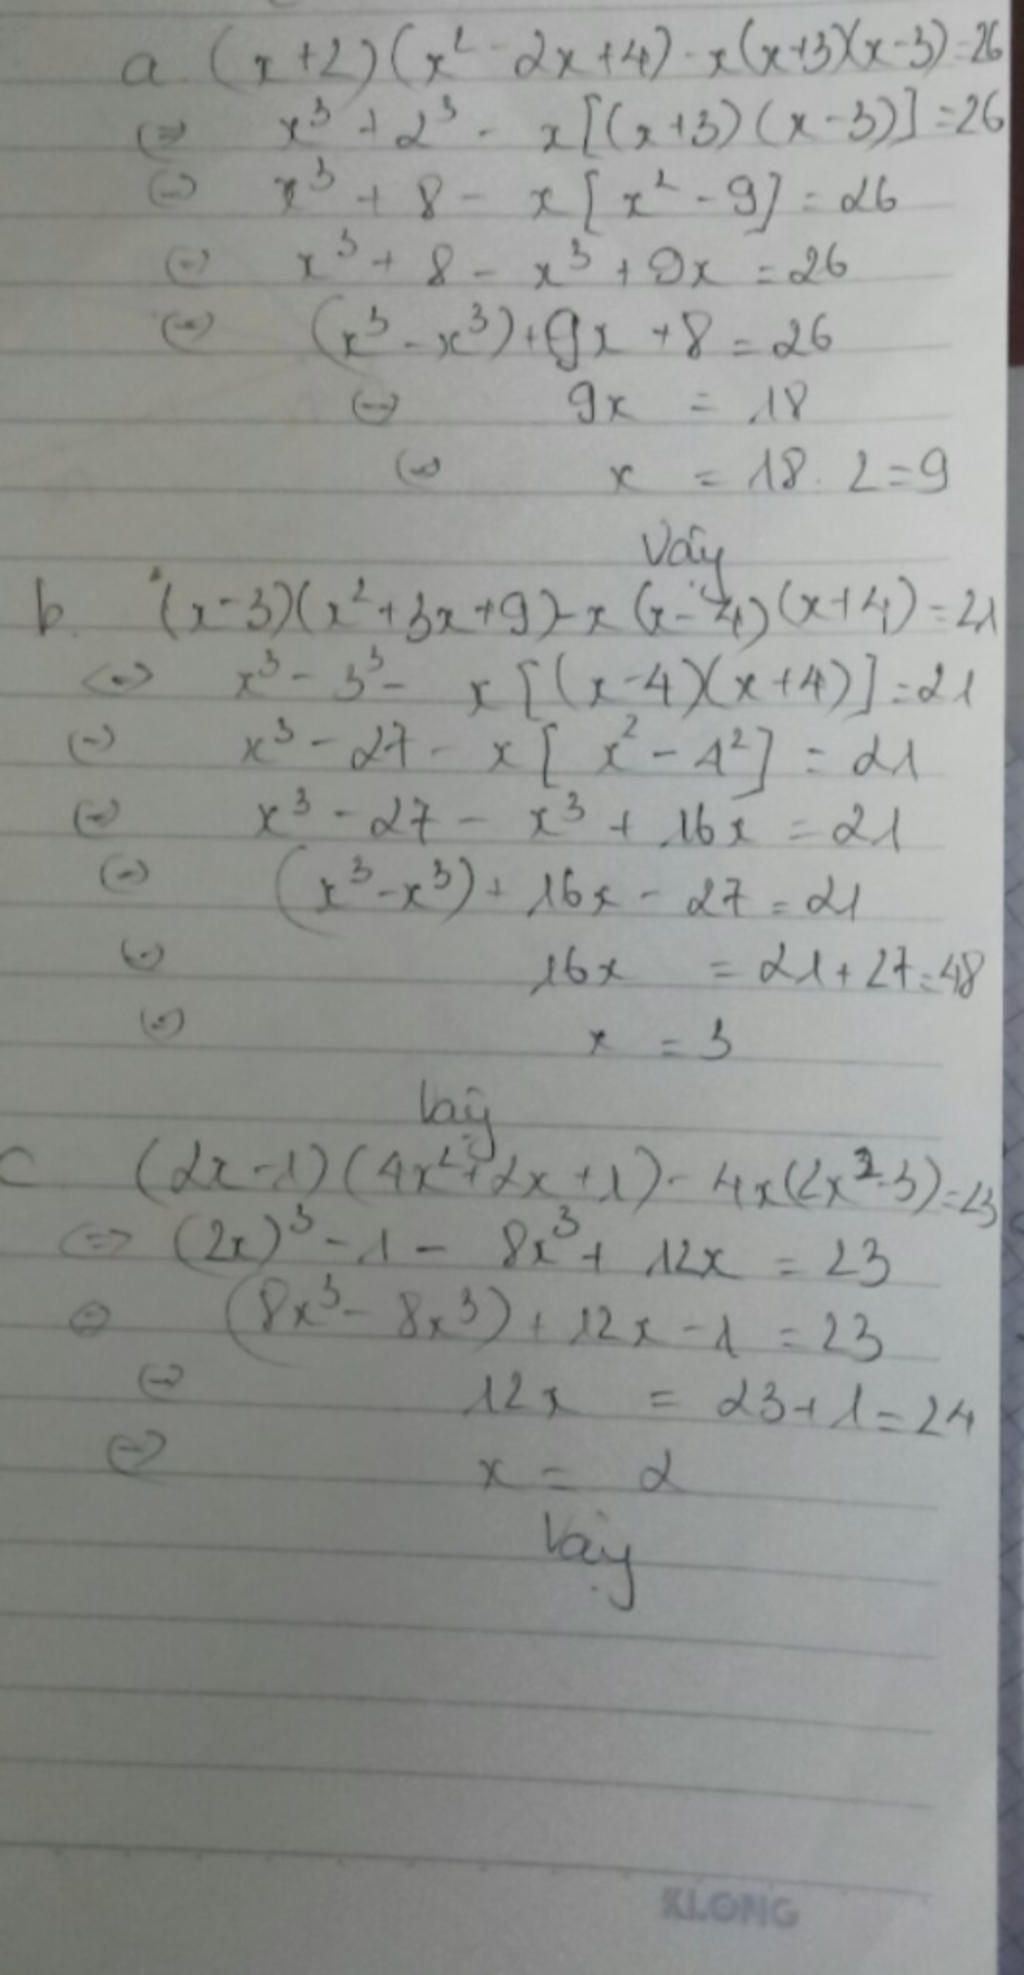 a. (x+2)(x² - 2x+4) - x(x+3)(x-3) = 26
⇔ x³ + 2³ - x[(x+3)(x-3)] = 26
⇔ x³ + 8 - x[x² - 9] = 26
⇔ x³ + 8 - x³ + 9x = 26
⇔ (x³ - x³) + 9x + 8 = 26
⇔ 9x = 18
⇔ x = 18. 2 = 9
Vậy
b. (x-3)(x²+3x+9) - x(x-4)(x+4) = 21
⇔ x³ - 3³ - x[(x-4)(x+4)] = 21
⇔ x³ - 27 - x[x² - 4²] = 21
⇔ x³ - 27 - x³ + 16x = 21
⇔ (x³-x³) + 16x - 27 = 21
⇔ 16x = 21+27 = 48
⇔ x = 3
Vậy
c (2x-1)(4x²+2x+1) - 4x(2x²-3) = 23
⇔ (2x)³ - 1 - 8x³ + 12x = 23
⇔ (8x³ - 8x³) + 12x - 1 = 23
⇔ 12x = 23+1 = 24
⇔ x = 2
Vậy
KLONG